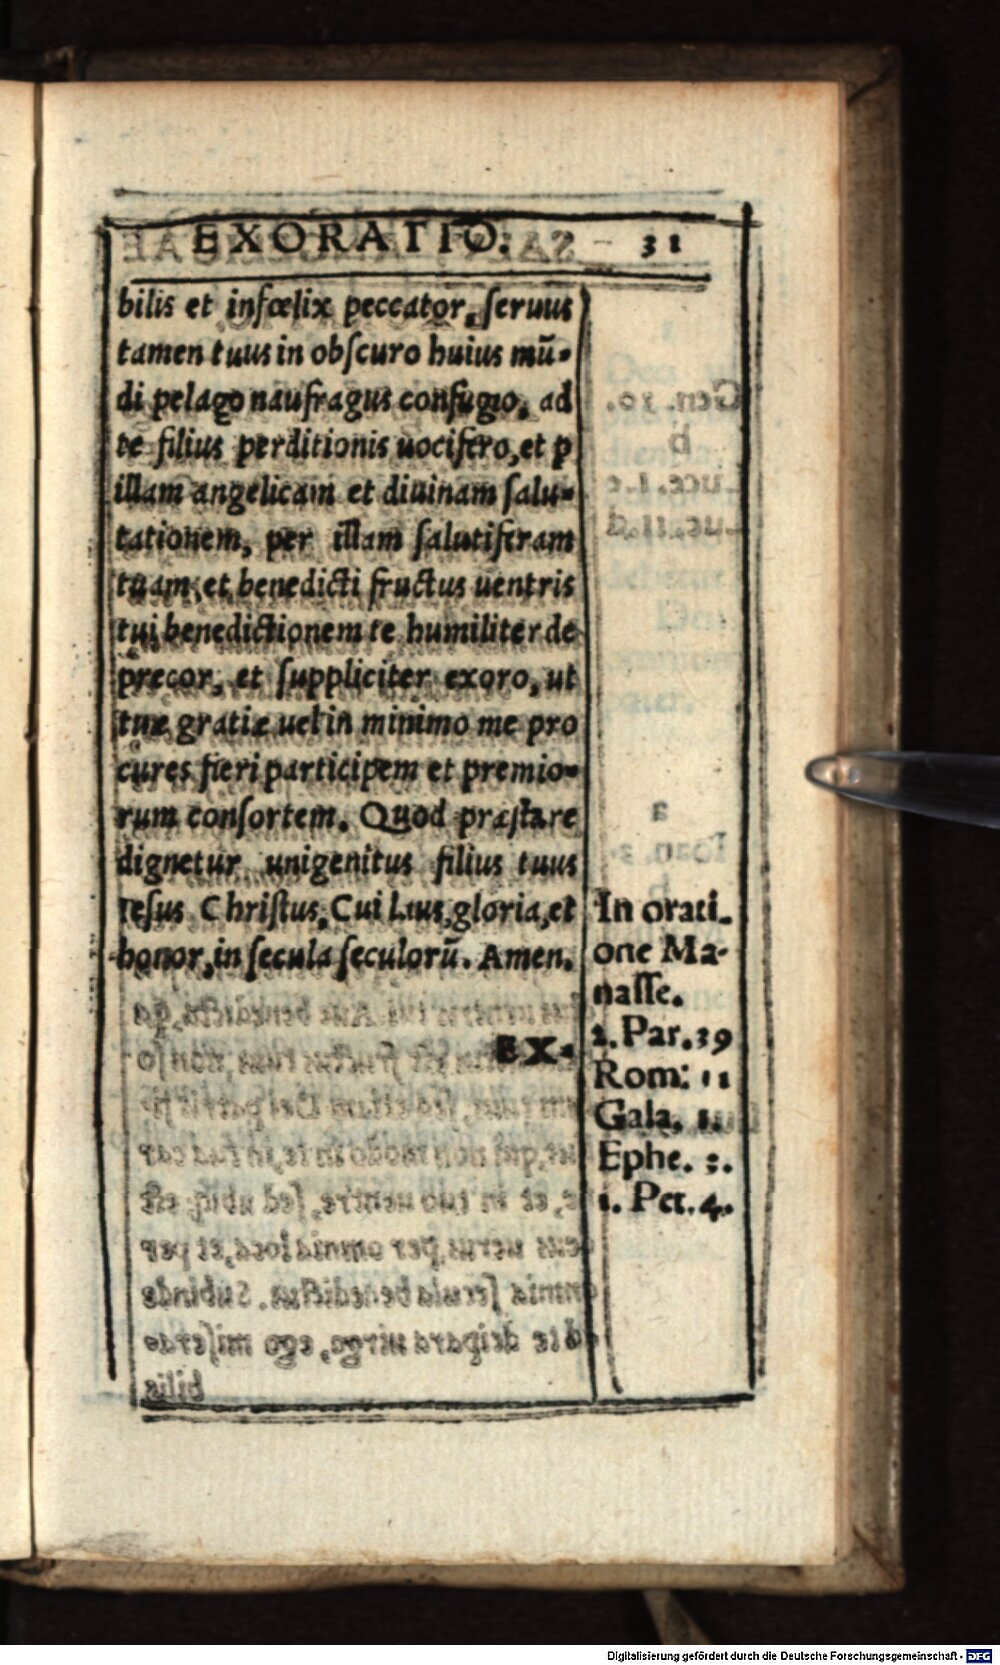 EXORATIO. 31
bilis et infœlix peccator, ſeruus
tamen tuus in obſcuro huius mū-
di pelago naufragus confugio, ad
te filius perditionis uocifero, et p
illam angelicam et diuinam ſalu-
tationem, per illam ſalutiferam
tuam, et benedicti fructus uentris
tui benedictionem te humiliter de
precor, et ſuppliciter exoro, ut
tuæ gratiæ uel in minimo me pro
cures fieri participem et premio-
rum conſortem. Quod præſtare
dignetur unigenitus filius tuus
Ieſus Chriſtus, Cui Laus, gloria, et
honor, in ſecula ſeculorū. Amen.
EX-
In orati-
one Ma-
naſſe.
2. Par. 39
Rom: 11
Gala. 1.
Ephe. 3.
1. Pet. 4.
Digitalisierung gefördert durch die Deutsche Forschungsgemeinschaft - DFG